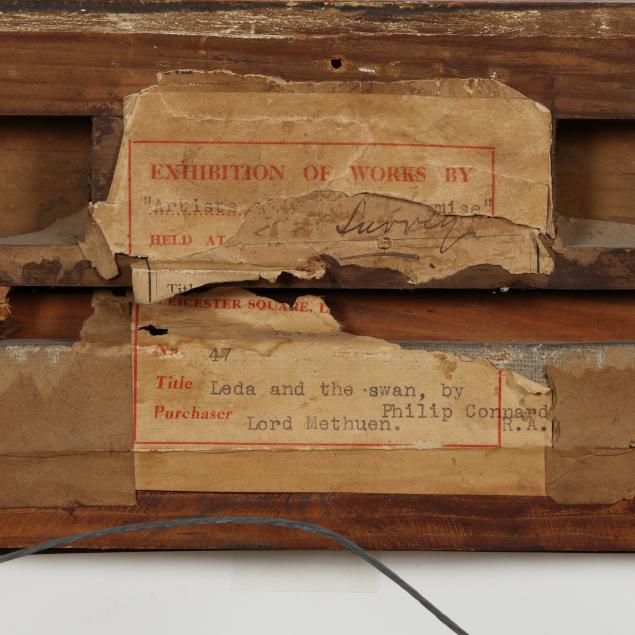 EXHIBITION OF WORKS BY
"Artists
HELD AT
LEICESTER SQUARE,
No. 47
Title Leda and the swan, by
Philip Connard
Purchaser Lord Methuen. R.A.